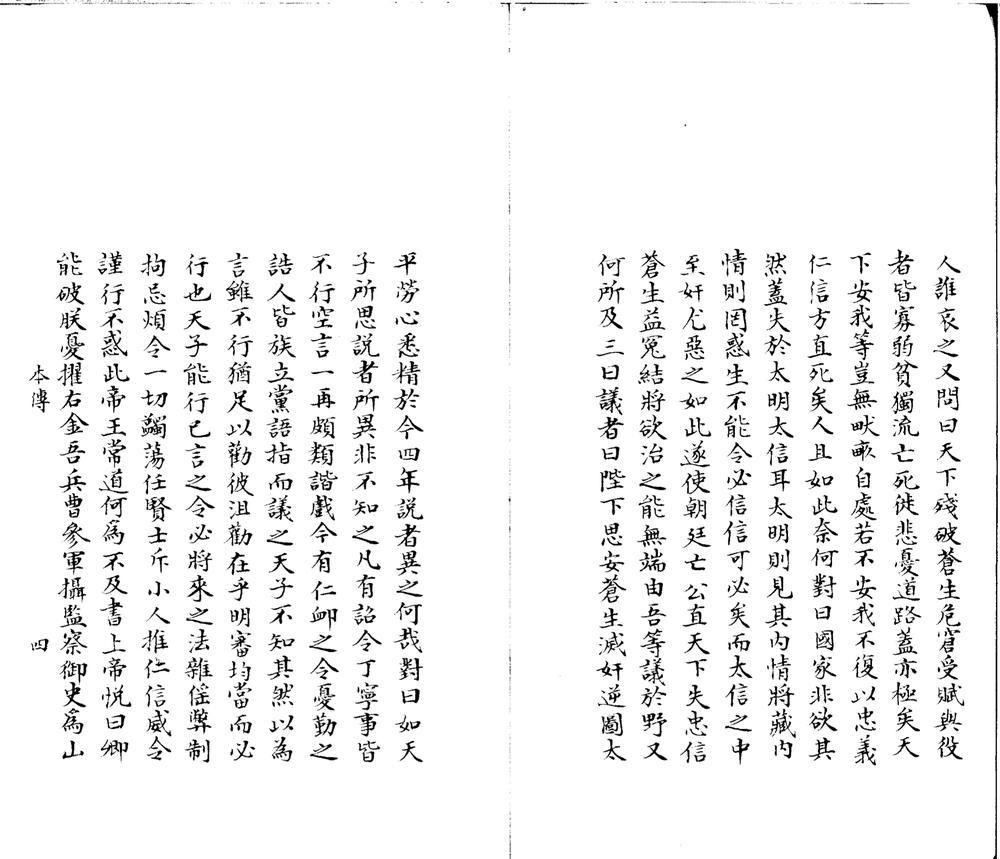 人誰哀之又問曰天下殘破蒼生危窘受賦與役
者皆寡弱貧獨流亡死徙悲憂道路蓋亦極矣天
下安我等豈無畎畝自處若不安我不復以忠義
仁信方直死矣人且如此奈何對曰國家非欲其
然蓋失於太明太信耳太明則見其內情將藏內
情則罔惑生不能令必信信可必矣而太信之中
至奸尤惡之如此遂使朝廷亡公直天下失忠信
蒼生益冤結將欲治之能無端由吾等議於野又
何所及三曰議者曰陛下思安蒼生滅奸逆圖太
平勞心悉精於今四年說者異之何哉對曰如天
子所思說者所異非不知之凡有詔令丁寧事皆
不行空言一再頗類諧戲今有仁卹之令憂勤之
誥人皆族立黨語指而議之天子不知其然以為
言雖不行猶足以勸彼沮勸在乎明審均當而必
行也天子能行已言之令必將來之法雜傜弊制
拘忌煩令一切蠲蕩任賢士斥小人推仁信威令
謹行不惑此帝王常道何為不及書上帝悅曰卿
能破朕憂擢右金吾兵曹參軍攝監察御史為山
本傳 四